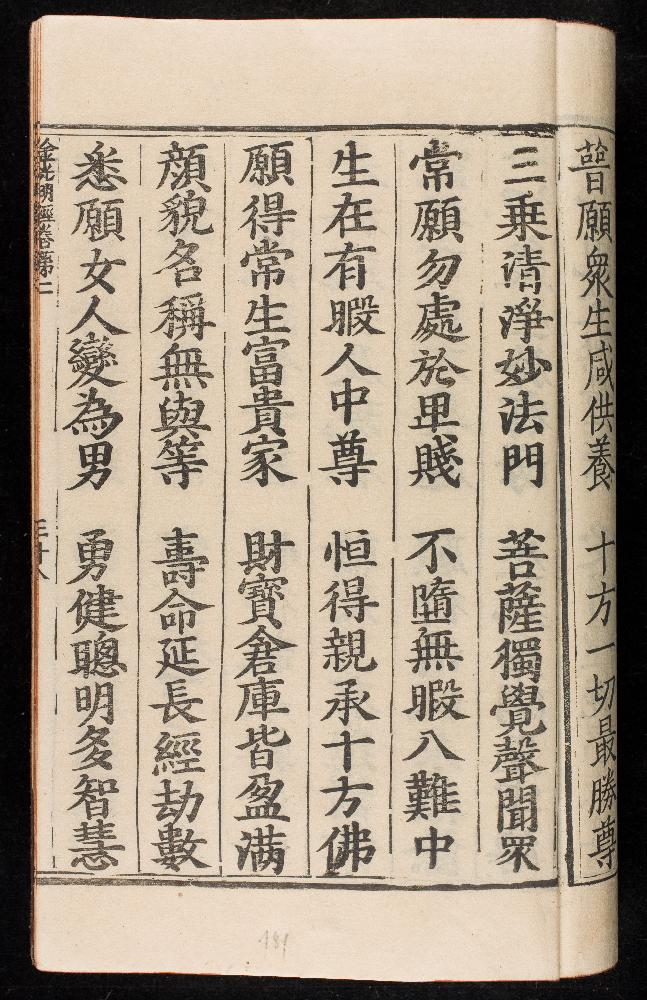 普願眾生咸供養 十方一切最勝尊
三乗清淨妙法門 菩薩獨覺聲聞眾
常願勿處於卑賤 不墮無暇八難中
生在有暇人中尊 恒得親承十方佛
願得常生富貴家 財寶倉庫皆盈满
顔貌名稱無與等 壽命延長經劫數
悉願女人變為男 勇健聰明多智慧
金光明經卷第二 三十八
181